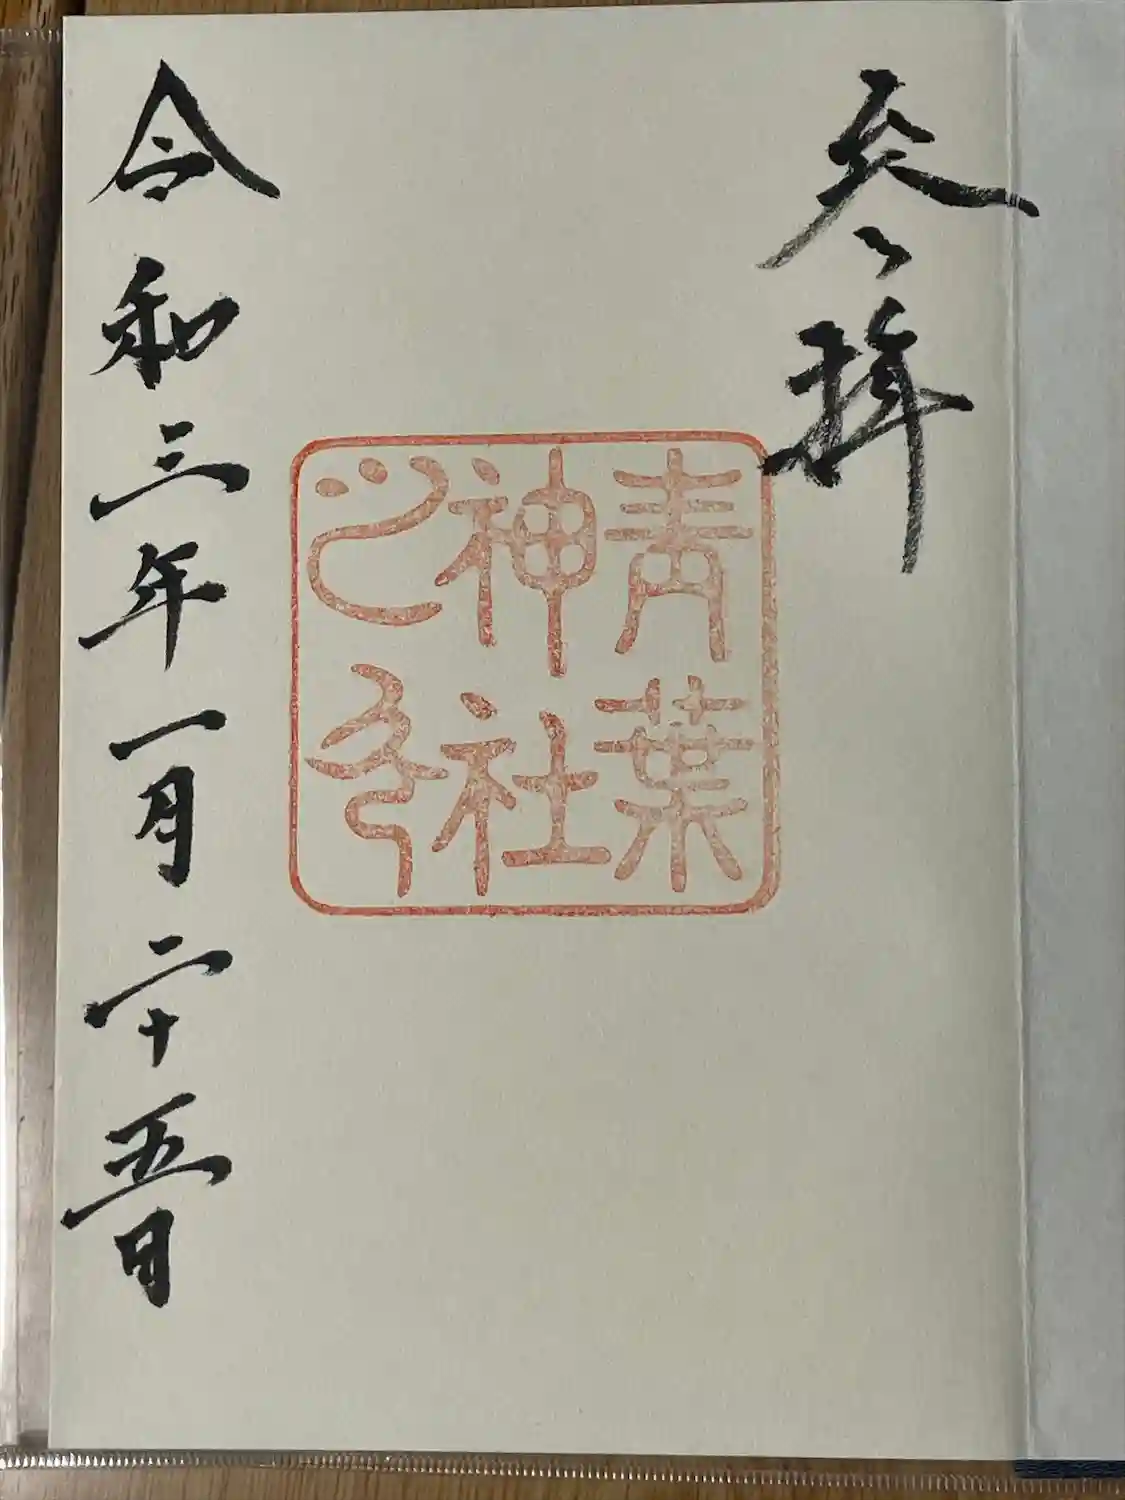 奉拝
青葉
神社
之印
令和三年一月二十五日